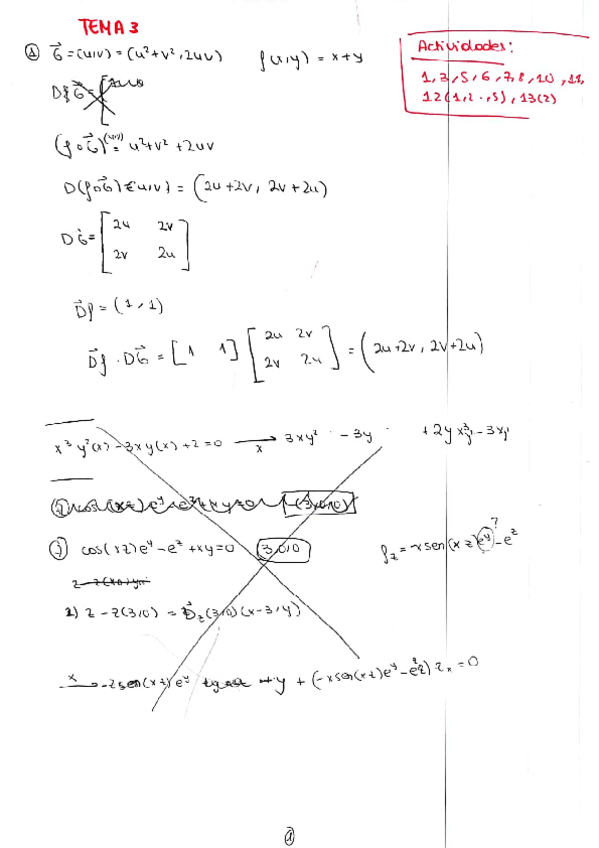 TEMA 3
Actividades:
1, 3, 5, 6, 7, 8, 10, 11,
12(1,2..,5), 13(2)
① G⃗ = (u,v) = (u²+v², 2uv)   f(x,y) = x+y
(f∘G⃗)(u,v) = u²+v² + 2uv
D(f∘G)(u,v) = (2u+2v, 2v+2u)
DG⃗ = [2u 2v
2v 2u]
D⃗f = (1, 1)
D⃗f · DG⃗ = [1 1] [2u 2v
2v 2u] = (2u+2v, 2v+2u)
x³y²(x) - 3xy(x) + 2 = 0 →x 3xy² - 3y + 2y x³y' - 3xy'
j) cos(xz)e^y - e^z + xy = 0 (3,0,0)   f_z = -x sen(xz)e^y - e^z
?
1) z - z(3,0) = D⃗z(3,0)(x-3, y)
→x -z sen(xz)e^y + y + (-x sen(xz)e^y - e^z) z_x = 0
①